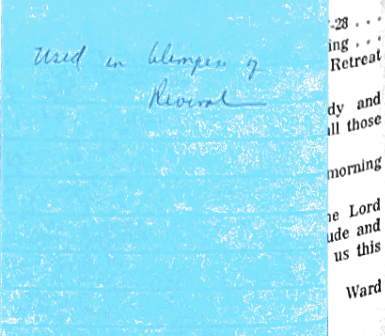 Used in Glimpses of
Revival
-28 . . .
ing . . .
Retreat
dy and
ll those
morning
e Lord
ude and
us this
Ward